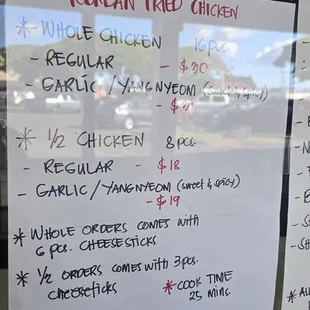 KOREAN FRIED CHICKEN
* WHOLE CHICKEN 16 pcs.
- REGULAR - $30
- GARLIC/YANGNYEOM (sweet & spicy)
- $31
* 1/2 CHICKEN 8 pcs.
- REGULAR - $18
- GARLIC/YANGNYEOM (sweet & spicy)
- $19
* WHOLE ORDERS COMES with
6 pcs. CHEESESTICKS
* 1/2 ORDERS COMES with 3 pcs.
cheesesticks
* COOK TIME
25 mins.